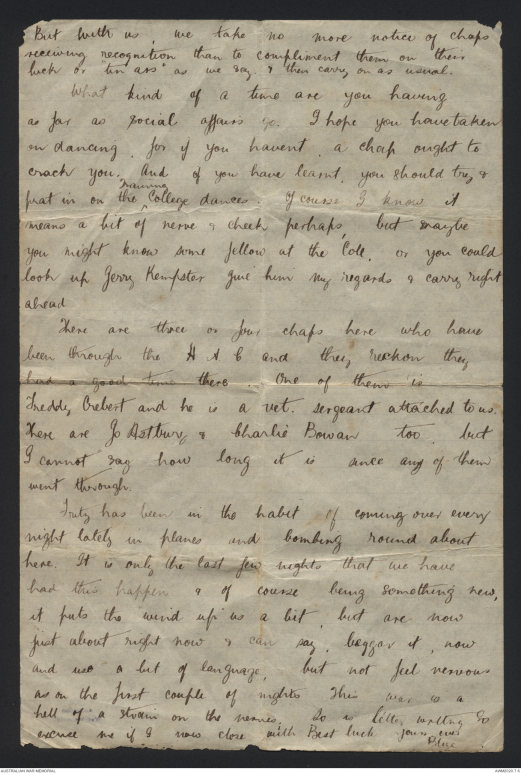 But with us, we take no more notice of chaps
receiving recognition than to compliment them on their
luck or "tin ass" as we say, & then carry on as usual.
What kind of a time are you having
as far as social affairs go. I hope you have taken
on dancing, for if you havent, a chap ought to
crack you. And if you have learnt, you should try &
Training
put in on the College dances. Of course I know it
means a bit of nerve & cheek perhaps, but maybe
you might know some fellow at the Coll, or you could
look up Jerry Kempster give him my regards & carry right
ahead
There are three or four chaps here who have
been through the H A C and they reckon they
had a good time there. One of them is
Freddy Crebert and he is a vet. sergeant attached to us.
There are Jo Astbury & Charlie Bowan too, but
I cannot say how long it is since any of them
went through.
Fritz has been in the habit of coming over every
night lately in planes and bombing round about
here. It is only the last few nights that we have
had this happen & of course being something new,
it puts the wind up us a bit, but are now
just about right now & can say, beggar it, now
and use a bit of language, but not feel nervous
as on the first couple of nights. This war is a
hell of a strain on the nerves. So is letter writing so
excuse me if I now close with Best luck. Yours ever
AUSTRALIAN WAR MEMORIAL